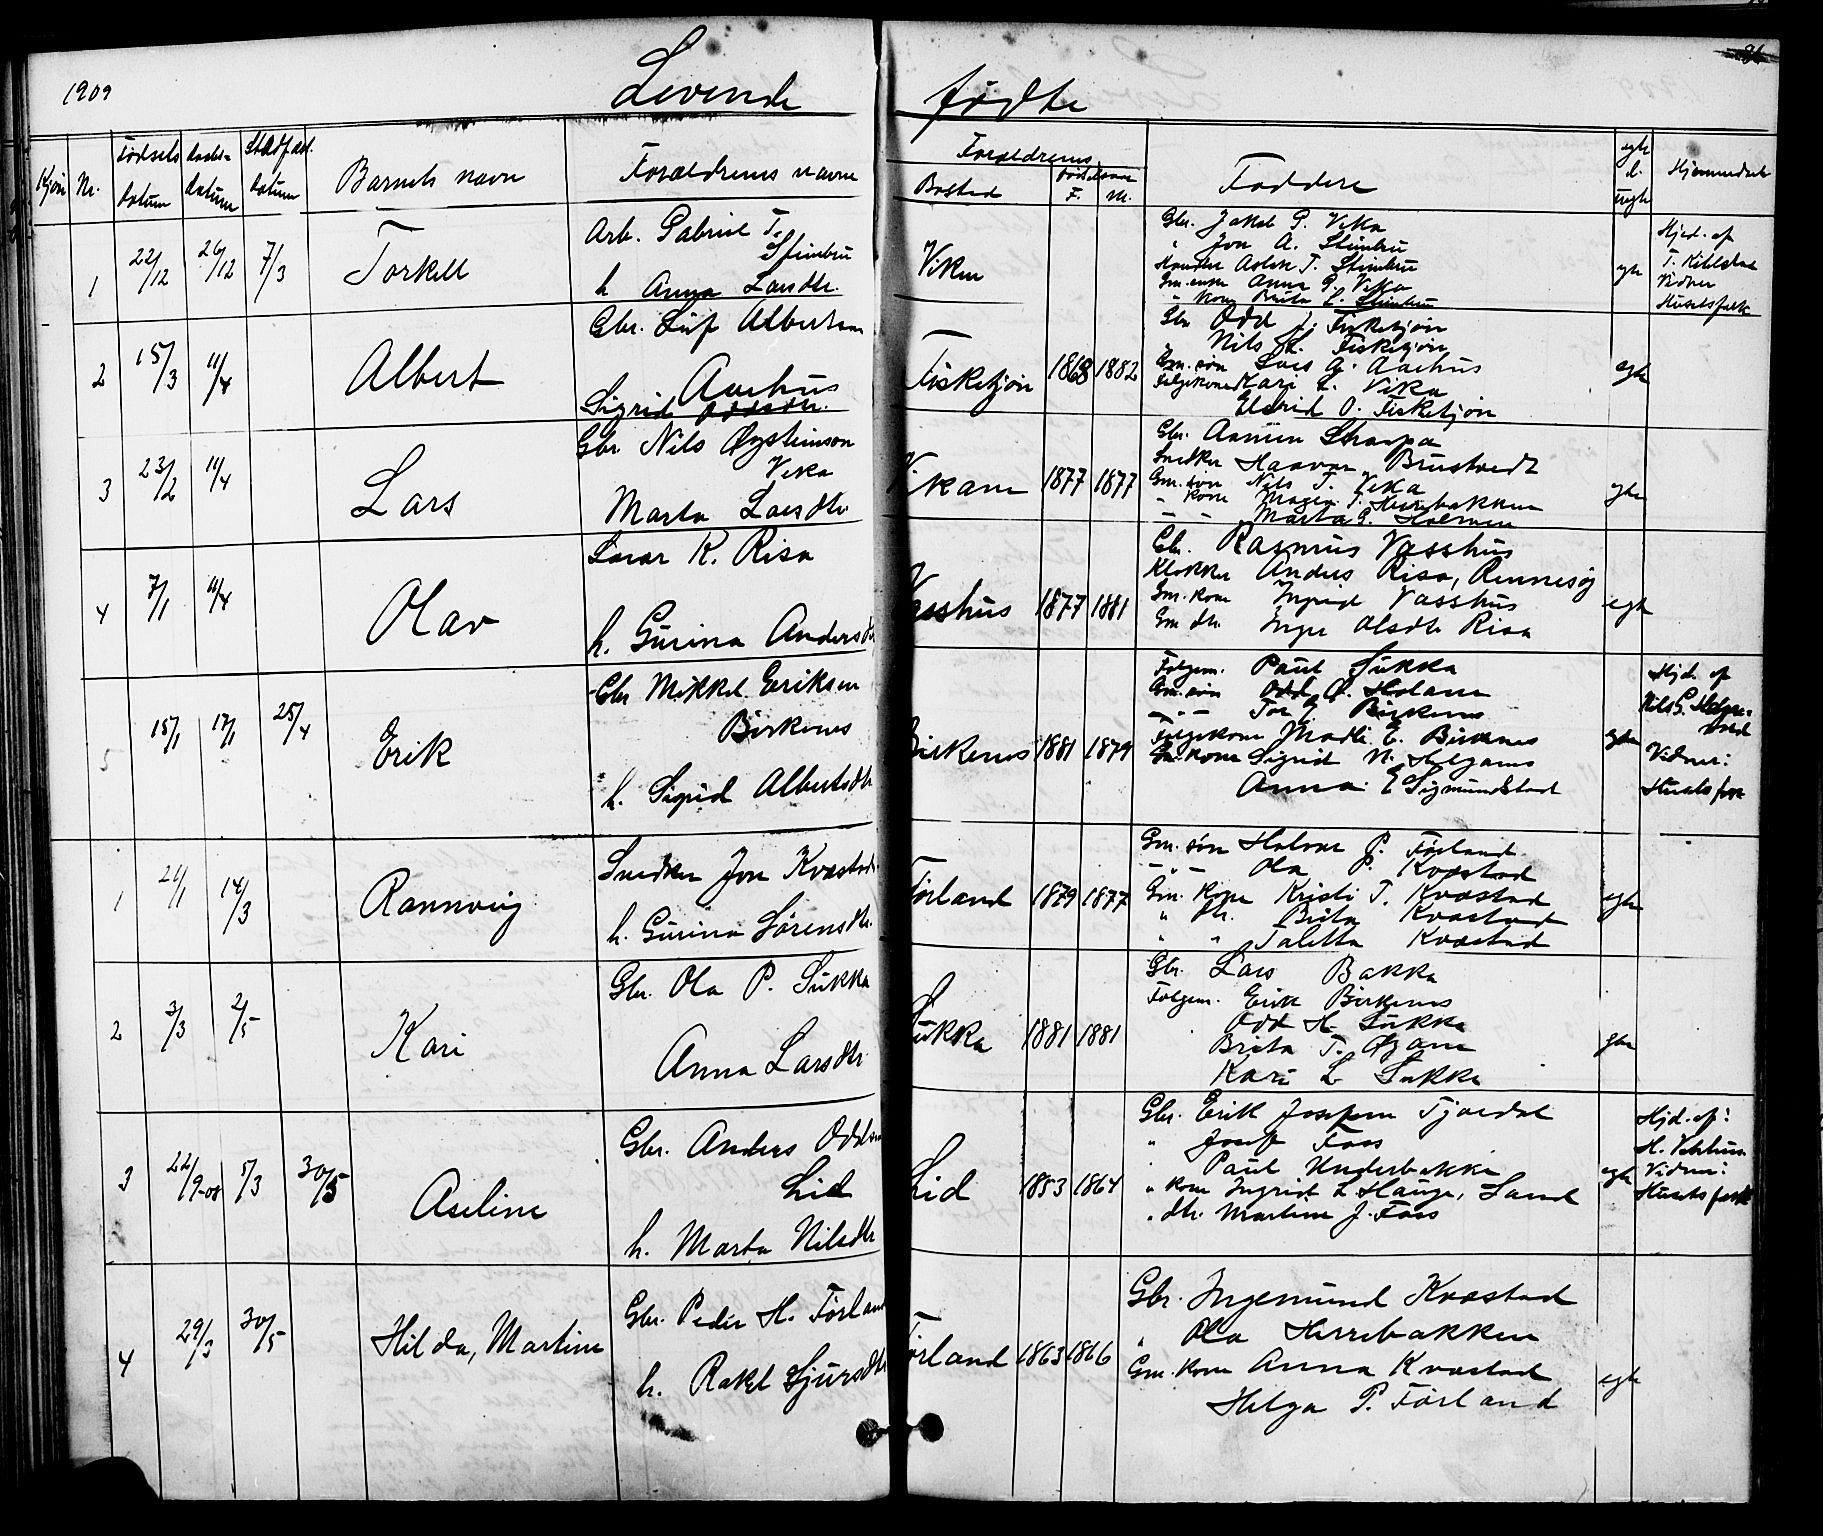 1909
Levende fødte
Kjøn Nr. Fødsels datum Daabs- datum Stadfæst. datum Barnets navn Forældrenes navne
Forældrenes Bosted Fødselsaar F. M. Faddere egte el. uegte Hjemmedøbt
1 22/12 26/12 7/3 Torkell
Arb. Gabriel T.
Steinbru
h Anna Larsdtr.
Viken
Gbr. Jakob P. Vika
" Jon A. Steinbru
Aslak T. Steinbru
Gm. enke Anna G. Vika
" kone Brita L. Steinbru
egte
Hjd. af
T.
Vidner
Husetsfolk
2 15/3 11/4 Albert
Gbr. Leif Albertsen
Aarhus
Sigrid Oddsdtr.
Fisketjøn 1868 1882
Gbr Odd L. Fisketjøn
Nils L. Fisketjøn
Gm. søn Lars A. Aarhus
Følgekone Kari L. Vika
Eldrid O. Fisketjøn
egte
3 23/2 11/4 Lars
Gbr Nils Øysteinson
Veka
Marta Larsdtr
Vikane 1877 1877
Gbr. Aamun Skarpa
Snedker Haavar Brustvedt
Gm. søn Nils T. Veka
" kone T. Herrebakken
" " Marta G.
egte
4 7/1 11/4 Olav
Lærer R. Risa
h. Gurina Andersdtr
Vasshus 1877 1881
Gbr. Rasmus Vasshus
Klokker Anders Risa, Rennesøy
Gm. kone Ingrid Vasshus
Gm dtr. Inger Olsdtr Risa
egte
5 15/1 17/1 25/4 Erik
Gbr Mikkel Eriksen
Birkenes
h. Sigrid Albertsdtr
Birkenes 1881 1879
Følgem. Paul Sukka
Gm. søn Odd O. Holane
" " Tor J. Birkenes
Følgekone Madli E. Birkenes
Gm. kone Sigrid N. Helganes
Anna E Sigmundstad
egte
Hjd. af
Nils G.
Vidner:
Husetsfolk
1 21/1 14/3 Rannveig
Snedker Jon Kvæstad
h. Gurina Sørensdtr.
Førland 1879 1877
Gm. søn Halvar P. Førland
" " Ola P. Kvæstad
Gm. kone Kristi T. Kvæstad
" dtr. Brita Kvæstad
" " Taletta Kvæstad
egte
2 3/3 2/5 Kari
Gbr. Ola P. Sukka
Anna Larsdtr
Sukka 1881 1881
Gbr. Lars Bakka
Følgem. Erik Birkenes
Odd H. Sukka
Brita T. Øyane
Kari L Sukka
egte
3 22/9-08 5/3 30/5 Aseline
Gbr. Anders Oddsen
Lid
h. Marta Nilsdtr
Lid 1853 1864
Gbr. Erik Josefsen Tjordal
" Josef Foss
" Paul Underbakke
" kone Ingrid L Hauge, Sand
" dtr. Martine J. Foss
egte
Hjd. af:
H.
Vidner:
Husetsfolk
4 29/3 30/5 Hilda, Martine
Gbr. Peder H. Førland
h. Rakel Sjursdtr
Førland 1863 1866
Gbr. Ingemund Kvæstad
" Ola Herrebakken
Gm. kone Anna Kvæstad
Helga P. Førland
egte